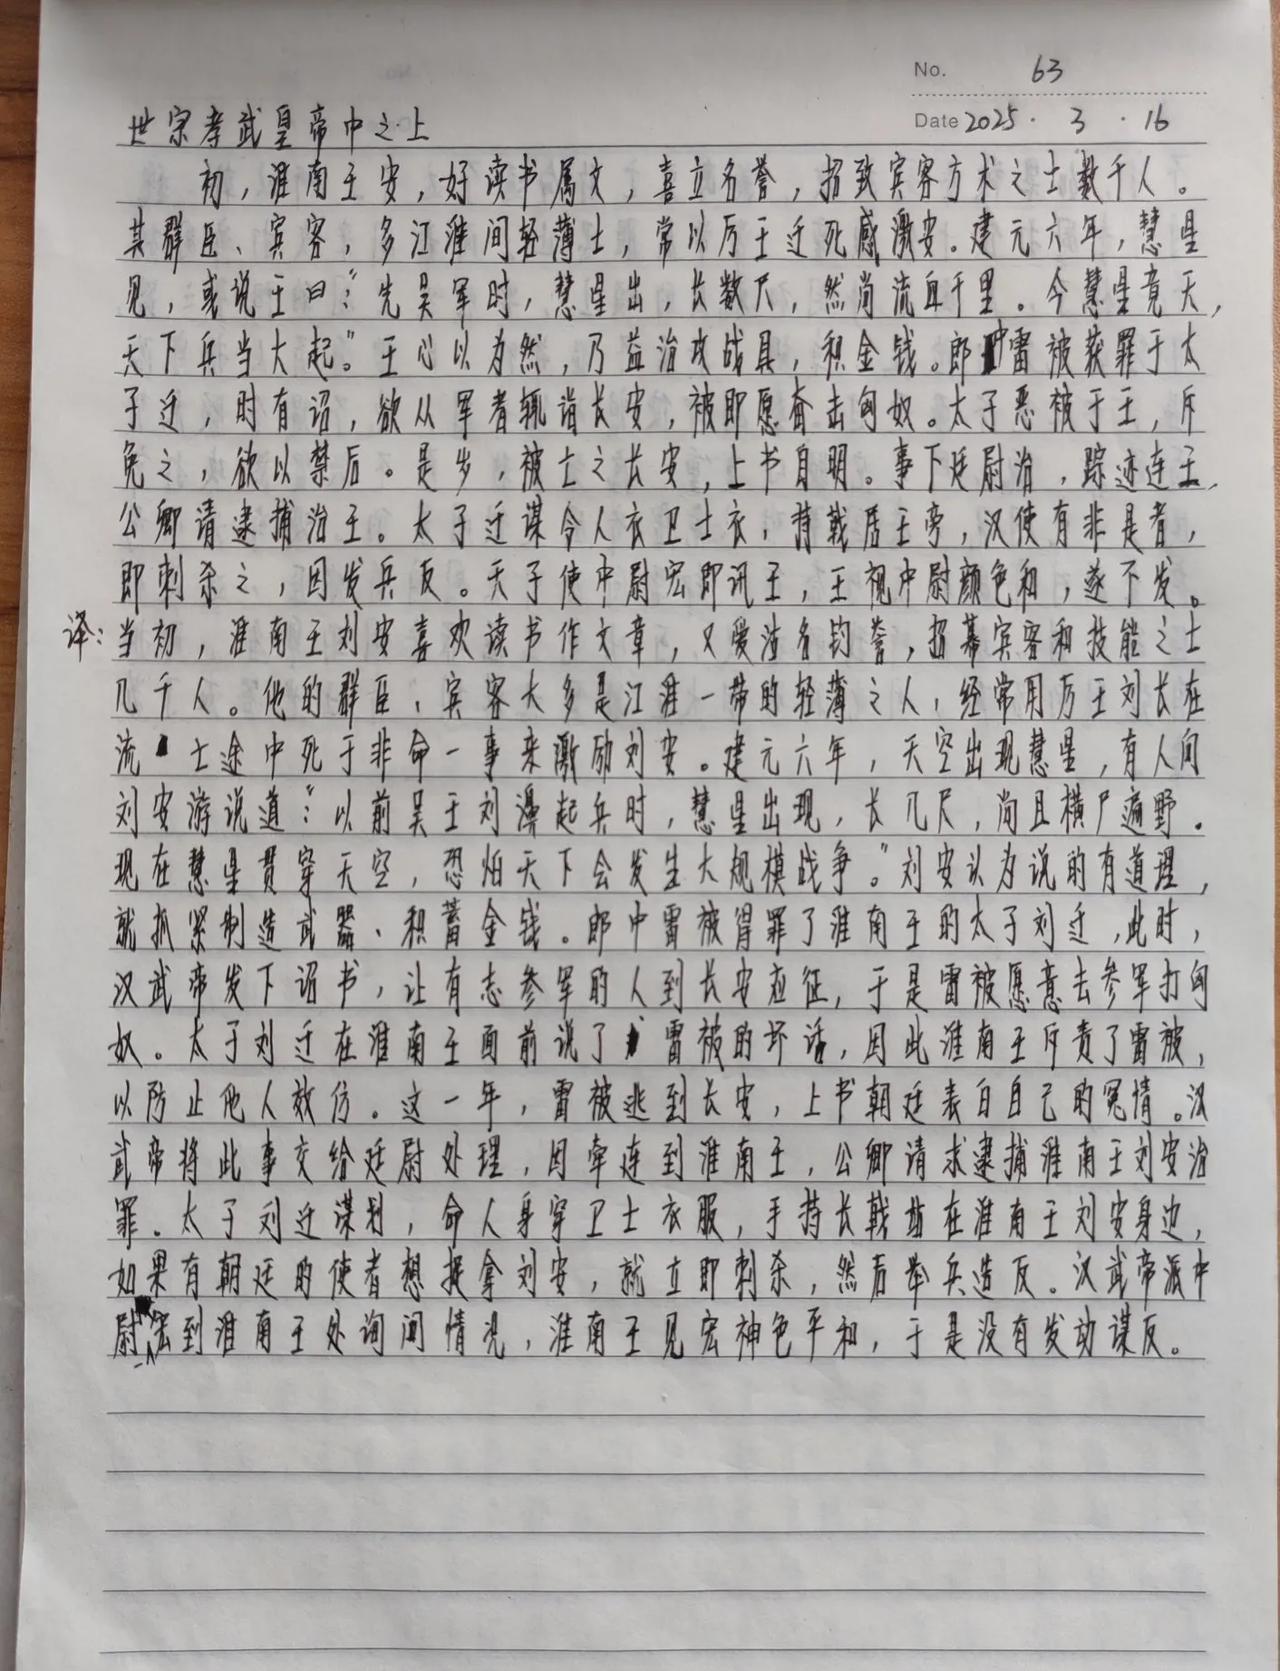 No. 63
世宗孝武皇帝中之上
Date 2025 · 3 · 16
初，淮南王安，好读书属文，喜立名誉，招致宾客方术之士数千人。
其群臣、宾客，多江淮间轻薄士，常以厉王迁死感激安。建元六年，慧星
见，或说王曰：“先吴军时，慧星出，长数尺，然尚流血千里。今慧星竟天，
天下兵当大起。”王心以为然，乃益治攻战具，积金钱。郎中雷被获罪于太
子迁，时有诏，欲从军者辄诣长安，被即愿奋击匈奴。太子恶被于王，斥
免之，欲以禁后。是岁，被亡之长安，上书自明。事下廷尉治，踪迹连王，
公卿请逮捕治王。太子迁谋令人衣卫士衣，持戟居王旁，汉使有非是者，
即刺杀之，因发兵反。天子使中尉宏即讯王，王视中尉颜色和，遂不发。
译：当初，淮南王刘安喜欢读书作文章，又爱沽名钓誉，招募宾客和技能之士
几千人。他的群臣、宾客大多是江淮一带的轻薄之人，经常用厉王刘长在
流亡途中死于非命一事来激励刘安。建元六年，天空出现慧星，有人向
刘安游说道：“以前吴王刘濞起兵时，慧星出现，长几尺，尚且横尸遍野。
现在慧星贯穿天空，恐怕天下会发生大规模战争。”刘安认为说的有道理，
就抓紧制造武器、积蓄金钱。郎中雷被得罪了淮南王的太子刘迁，此时，
汉武帝发下诏书，让有志参军的人到长安应征，于是雷被愿意去参军打匈
奴。太子刘迁在淮南王面前说了雷被的坏话，因此淮南王斥责了雷被，
以防止他人效仿。这一年，雷被逃到长安，上书朝廷表白自己的冤情。汉
武帝将此事交给廷尉处理，因牵连到淮南王，公卿请求逮捕淮南王刘安治
罪。太子刘迁谋划，命人身穿卫士衣服，手持长戟站在淮南王刘安身边，
如果有朝廷的使者想捉拿刘安，就立即刺杀，然后举兵造反。汉武帝派中
尉宏到淮南王处询问情况，淮南王见宏神色平和，于是没有发动谋反。